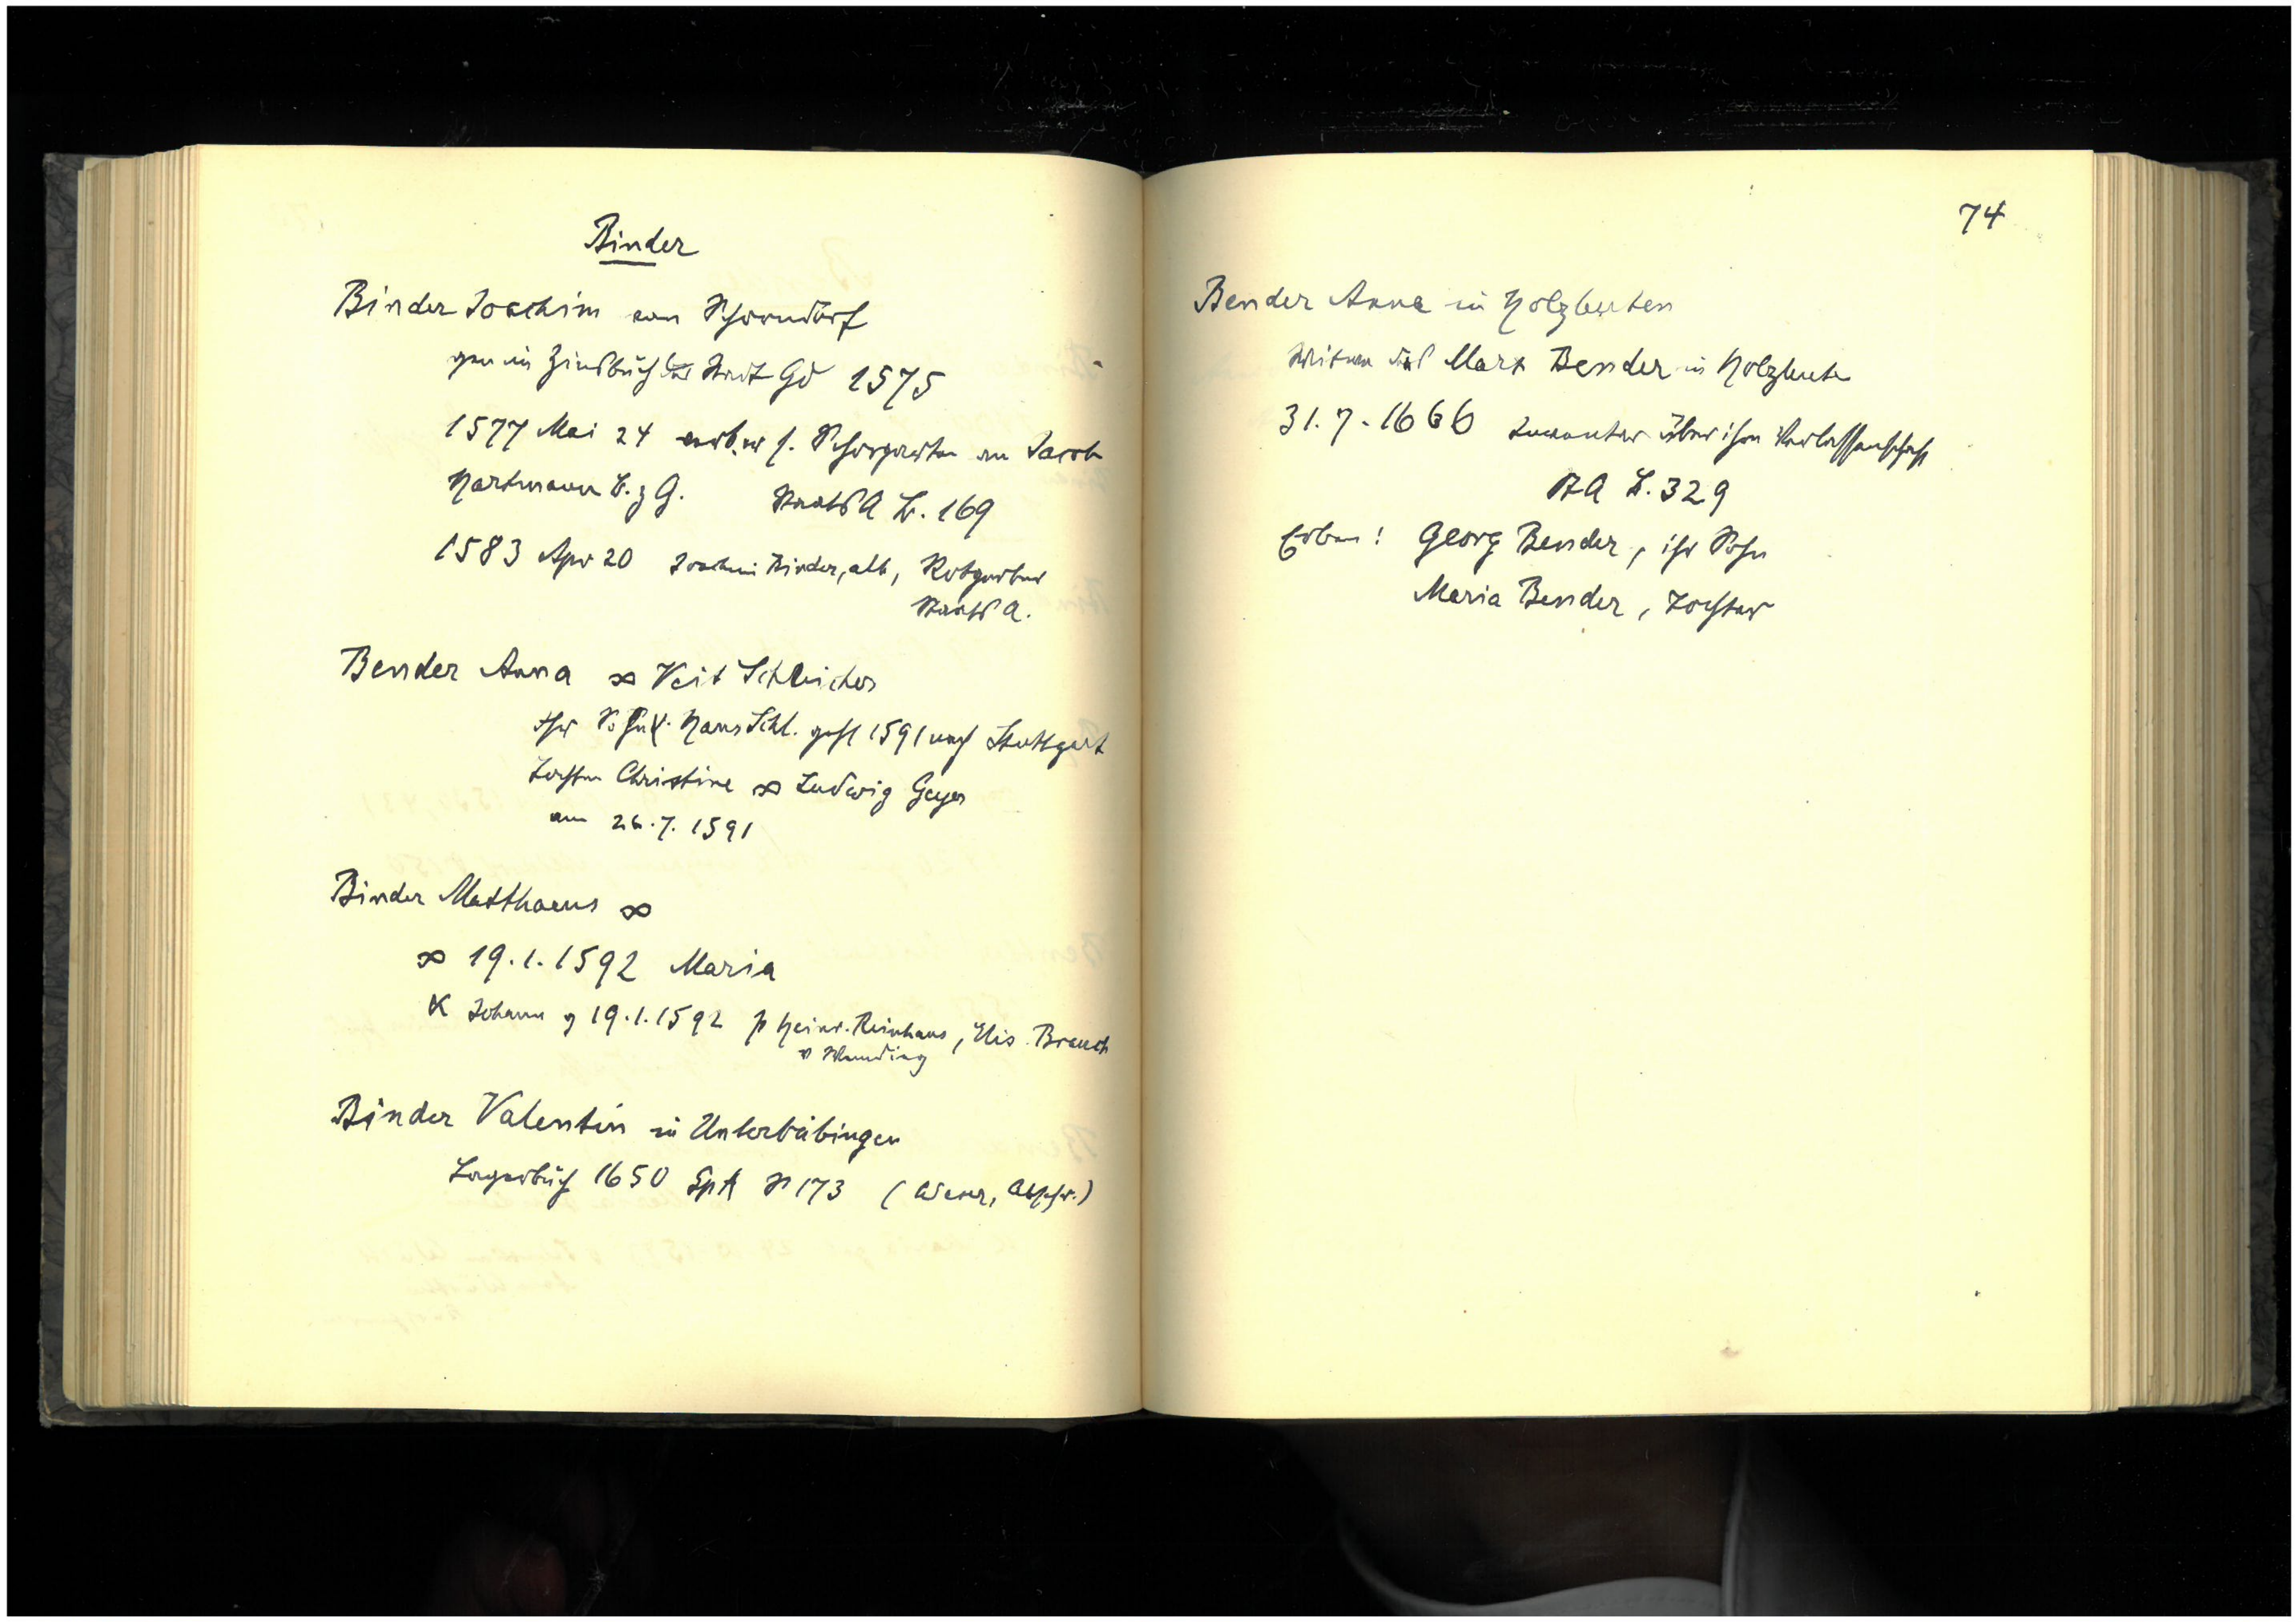 Binder
Binder Joachim von Schorndorf
gen im Zinsbuch der Stadt Gd 1575
1577 Mai 24 s. Schorgarten an Jacob
Hartmann B. z G. Staats A L. 169
1583 Apr 20 Joachim Binder, alt, Rotgerber
Staats A.
Bender Anna ∞ Veit Schleicher
Ihr Sohn Hans Schl. geht 1591 nach Stuttgart
Tochter Christine ∞ Ludwig Geyer
am 26.7. 1591
Binder Matthaeus ∞
∞ 19.1.1592 Maria
K Johann g 19.1.1592 p Heinr. Reinhans, Elis. Brauch
Binder Valentin in Unterböbingen
Lagerbuch 1650 Spt S 173 (Abschr.)
74
Bender Anna in Holzleuten
Witwe des Marx Bender in Holzleuten
31.7.1666 Inventar über ihre Verlassenschaft
St A L. 329
Erben: Georg Bender, ihr Sohn
Maria Bender, Tochter